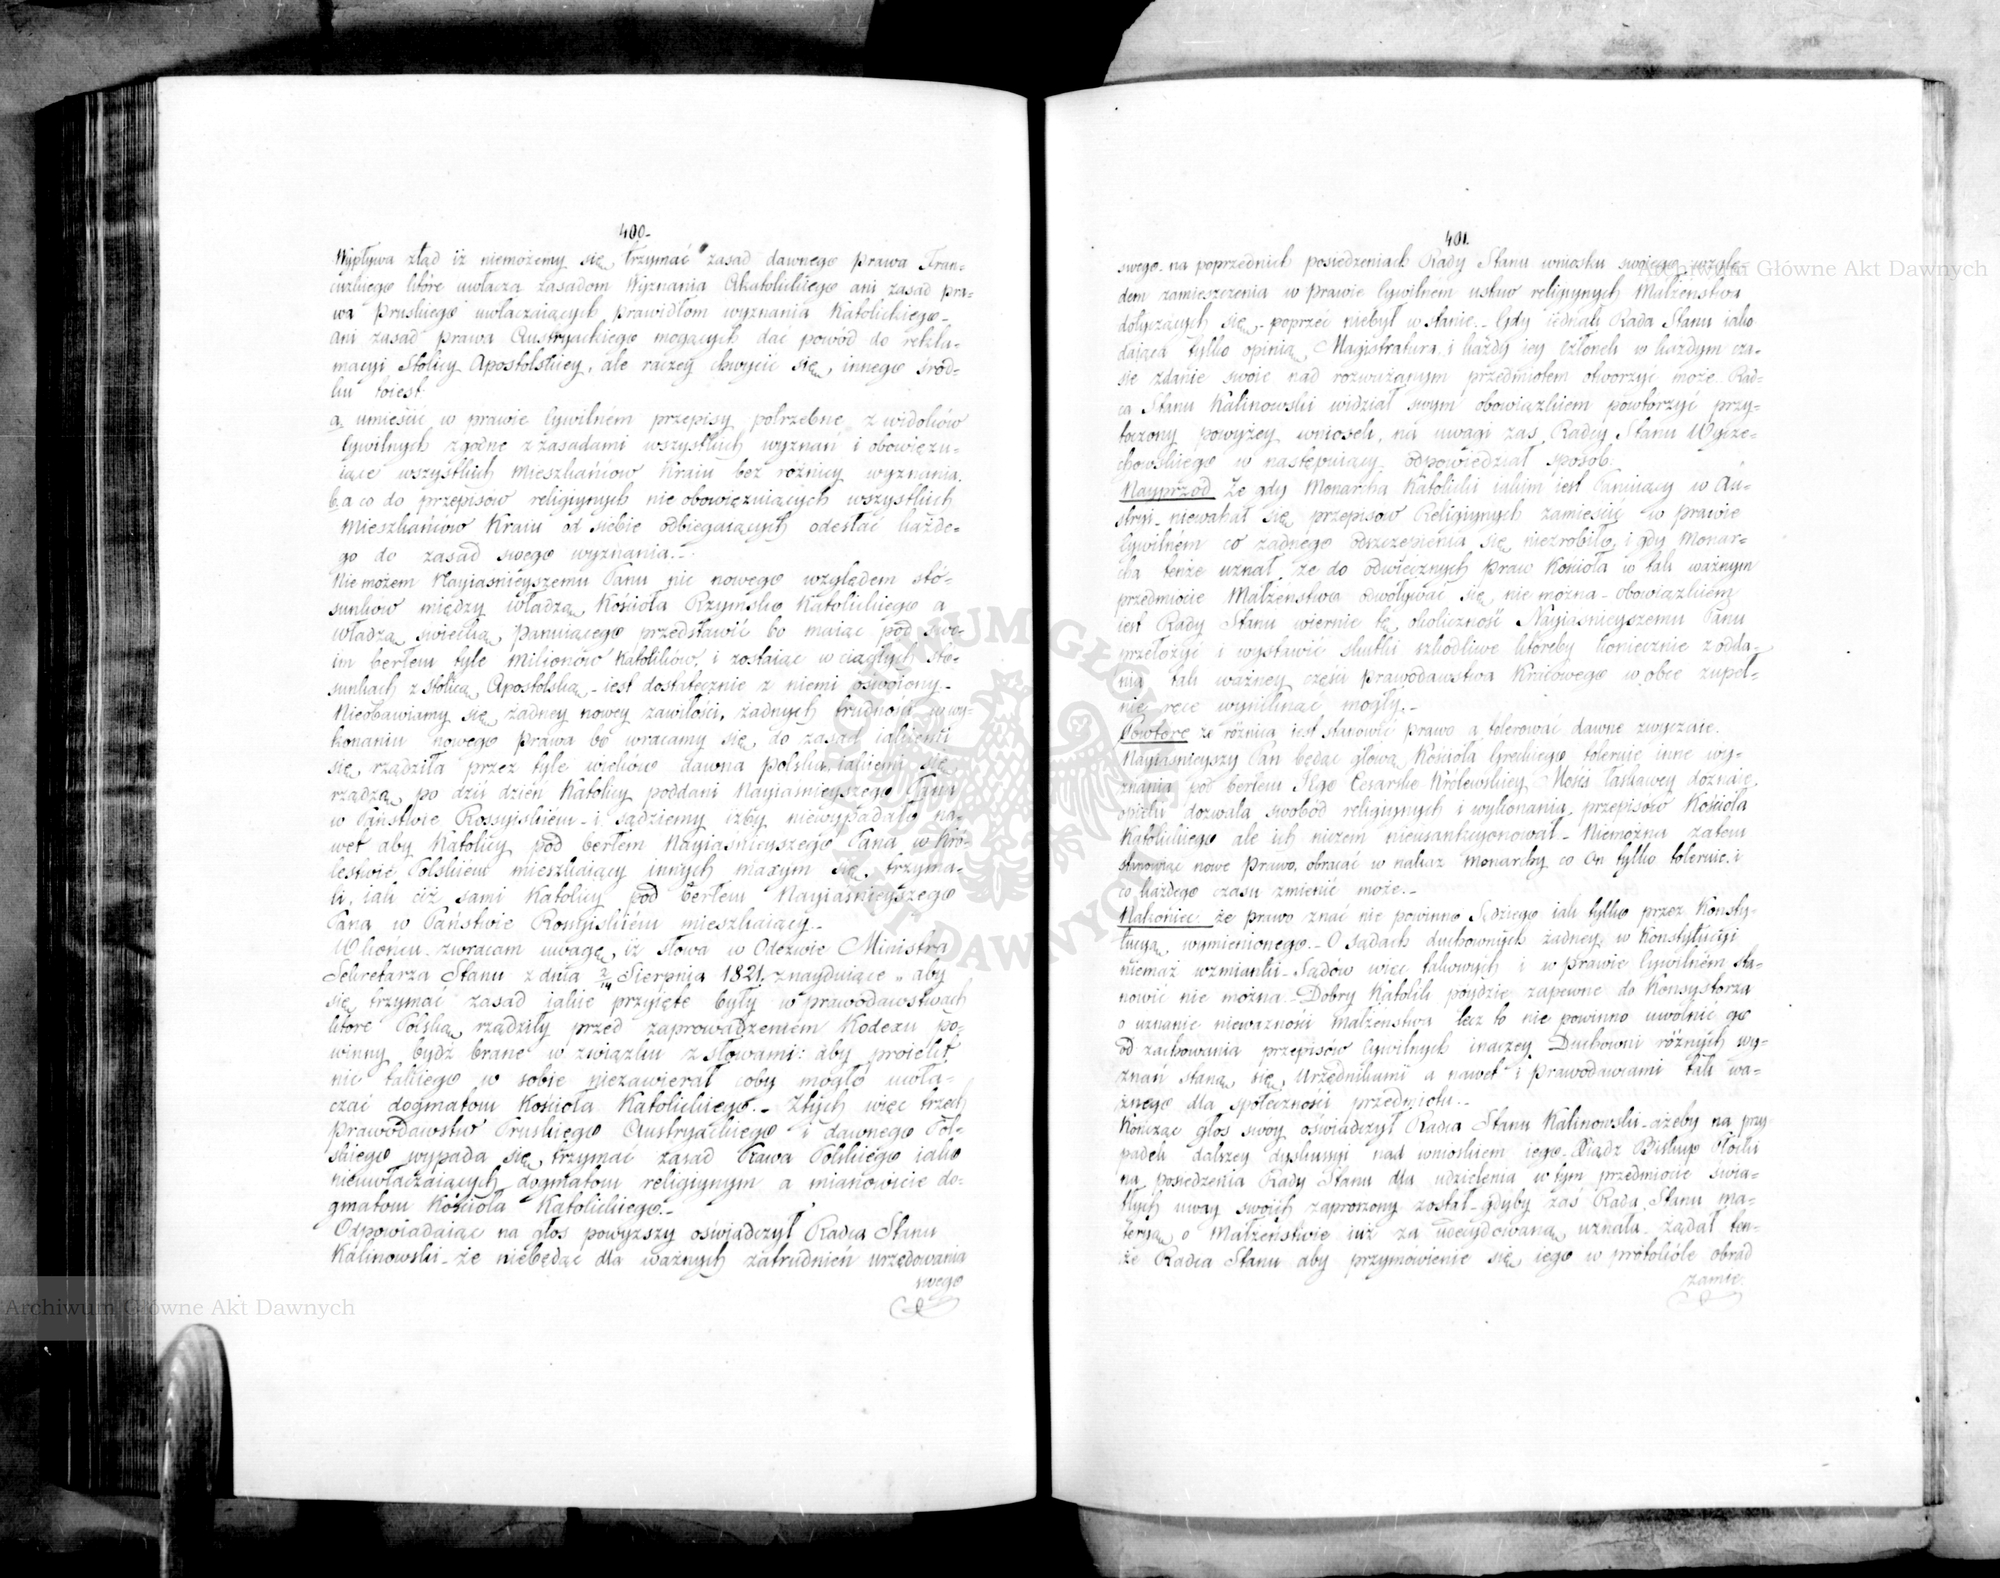 400.
Wypływa ztąd iż niemożemy się trzymać zasad dawnego prawa Fran-
cuzkiego które uwłacza zasadom Wyznania Akatolickiego ani zasad pra-
wa Pruskiego uwłaczaiących prawidłom wyznania Katolickiego –
ani zasad prawa Austryackiego mogących dać powód do rekla-
macyi Stolicy Apostolskiey, ale raczey chwycić się, innego środ-
ku toiest
a, umieścić w prawie Cywilném przepisy potrzebne z widoków
Cywilnych zgodne z zasadami wszystkich wyznań i obowięzu-
iące wszystkich Mieszkańców Kraiu bez różnicy wyznania.
b, a co do przepisów religiynych nie obowięzuiących wszystkich
Mieszkańców Kraiu od siebie odbiegaiących odesłać każde-
go do zasad swego wyznania. –
Nie możem Nayiaśnieyszemu Panu nic nowego względem stó-
sunków między władzą Kościoła Rzymsko Katolickiego a
władzą świecką Panuiącego przedstawić bo maiąc pod swo-
im berłem tyle Milionów Katolików, i zostaiąc w ciągłych sto-
sunkach z stolicą Apostolską – iest dostatecznie z niemi oswoiony –
Nieobawiamy się żadney nowey zawiłości, żadnych trudności w wy-
konaniu nowego prawa bo wracamy się do zasad iakiemi
się rządziła przez tyle wieków dawna Polska, iakiemi się
rządzą po dziś dzień Katolicy poddani Nayiaśnieyszego Pana
w Państwie Rossyiskiém – i sądziemy iżby niewypadało na-
wet aby Katolicy pod berłem Nayiaśnieyszego Pana w Kró-
lestwie Polskiém mieszkaiący innych maxym się trzyma-
li, iak ciż sami Katolicy pod berłem Nayiaśnieyszego
Pana w Państwie Rossyiskiém mieszkaiący –
W końcu zwracam uwagę, iż słowa w Odezwie Ministra
Sekretarza Stanu z dnia 2/14 Sierpnia 1821. znayduiące „ aby
się trzymać zasad iakie przyięte były w prawodawstwach
które Polską rządziły przed zaprowadzeniem Kodexu po-
winny bydź brane w związku z słowami: aby proiekt
nic takiego w sobie niezawierał coby mogło uwła-
czać dogmatom Kościoła Katolickiego. – Z tych więc trzech
Prawodawstw Pruskiego Austryackiego i dawnego Pol-
skiego wypada się trzymać zasad Prawa Polskiego iako
nieuwłaczaiących dogmatom religiynym a mianowicie do-
gmatom Kościoła Katolickiego. –
Odpowiadaiąc na głos powyższy oświadczył Radca Stanu
Kalinowski – że niebędąc dla ważnych zatrudnień urzędowania
swego
401.
swego na poprzednich posiedzeniach Rady Stanu wniosku swoiego wzglę-
dem zamieszczenia w prawie Cywilném ustaw religiynych Małżeństwa
dotyczących się – poprzeć niebył w stanie – Gdy iednak Rada Stanu iako
daiąca tylko opinią Magistratura i każdy iey Członek w każdym cza-
sie zdanie swoie nad rozważanym przedmiotem otworzyć może – Rad-
ca Stanu Kalinowski widział swym obowiązkiem powtorzyć przy-
toczony powyżey wniosek, na uwagi zaś Radcy Stanu Wycze-
chowskiego w następuiący odpowiedział sposób.
Nayprzód Że gdy Monarcha Katolicki iakim iest Panuiący w Au-
stryi – niewahał się przepisów Religiynych zamieścić w prawie
Cywilném co żadnego odszczepienia się niezrobiło, i gdy Monar-
cha tenże uznał że do odwiecznych praw Kościoła w tak ważnym
przedmiocie Małżeństwa odwoływać się nie można – obowiązkiem
iest Rady Stanu wiernie tę okoliczność Nayiaśnieyszemu Panu
przełożyć i wystawić skutki szkodliwe któreby koniecznie z odda-
nia tak ważney części prawodawstwa Kraiowego w obce zupeł-
nie ręce wyniknąć mogły. –
Powtóre że różnica iest stanowić prawo a tolerować dawne zwyczaie.
Nayiaśnieyszy Pan będąc głową Kościoła Greckiego toleruie inne wy-
znania pod berłem Jego Cesarsko Królewskiey Mości łaskawey doznaie
opieki dozwala swobód religiynych i wykonania przepisów Kościoła
Katolickiego ale ich niczem nieusankcyonował – Niemożna zatem
stanowiąc nowe Prawo, obracać w nakaz Monarchy co On tylko toleruie i
co każdego czasu zmienić może. –
Nakoniec że prawo znać nie powinno Sędziego iak tylko przez Konsty-
tucyą wymienionego – O sądach duchownych żadney w Konstytucyi
niemasz wzmianki – Sądów więc takowych i w prawie Cywilném sta-
nowić nie można – Dobry Katolik póydzie zapewne do Konsystorza
o uznanie nieważności Małżeństwa lecz to nie powinno uwolnić go
od zachowania przepisów Cywilnych inaczey Duchowni różnych wy-
znań staną się Urzędnikami a nawet i prawodawcami tak wa-
żnego dla społeczności przedmiotu. –
Kończąc głos swoy oświadczył Radca Stanu Kalinowski – ażeby na przy-
padek dalszey dyskussyi nad wnioskiem iego Xiądz Biskup Płocki
na posiedzenia Rady Stanu dla udzielenia w tym przedmiocie świa-
tłych uwag swoich zaproszony został – gdyby zaś Rada Stanu ma-
teryą o Małżeństwie iuż za udecydowaną uznała – żądał ten-
że Radca Stanu aby przymówienie się iego w protokóle obrad
zamie-
Archiwum Główne Akt Dawnych
Archiwum Główne Akt Dawnych
ARCHIWUM GŁÓWNE AKT DAWNYCH